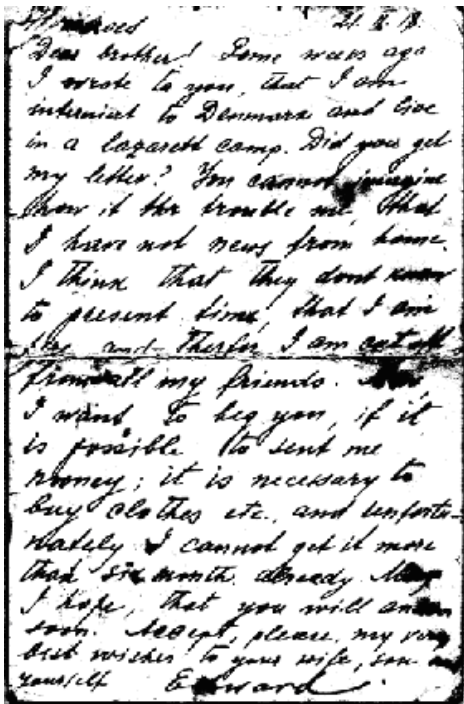 21. II. 18.
Dear brother! Some weeks ago
I wrote to you, that I am
interniert to Denmark and live
in a lazarett camp. Did you get
my letter? You cannot imagine
how it the trouble me, that
I have not news from home.
I think that they dont know
to present time, that I am
and Therfor I am cut off
from all my friends.
I want to beg you, if it
is possible to sent me
money; it is necessary to
buy clothes etc. and unfortu-
nately I cannot get it more
than six month already.
I hope, that you will answer
soon. Accept, please, my very
best wishes to your wife, son and
yourself Edward